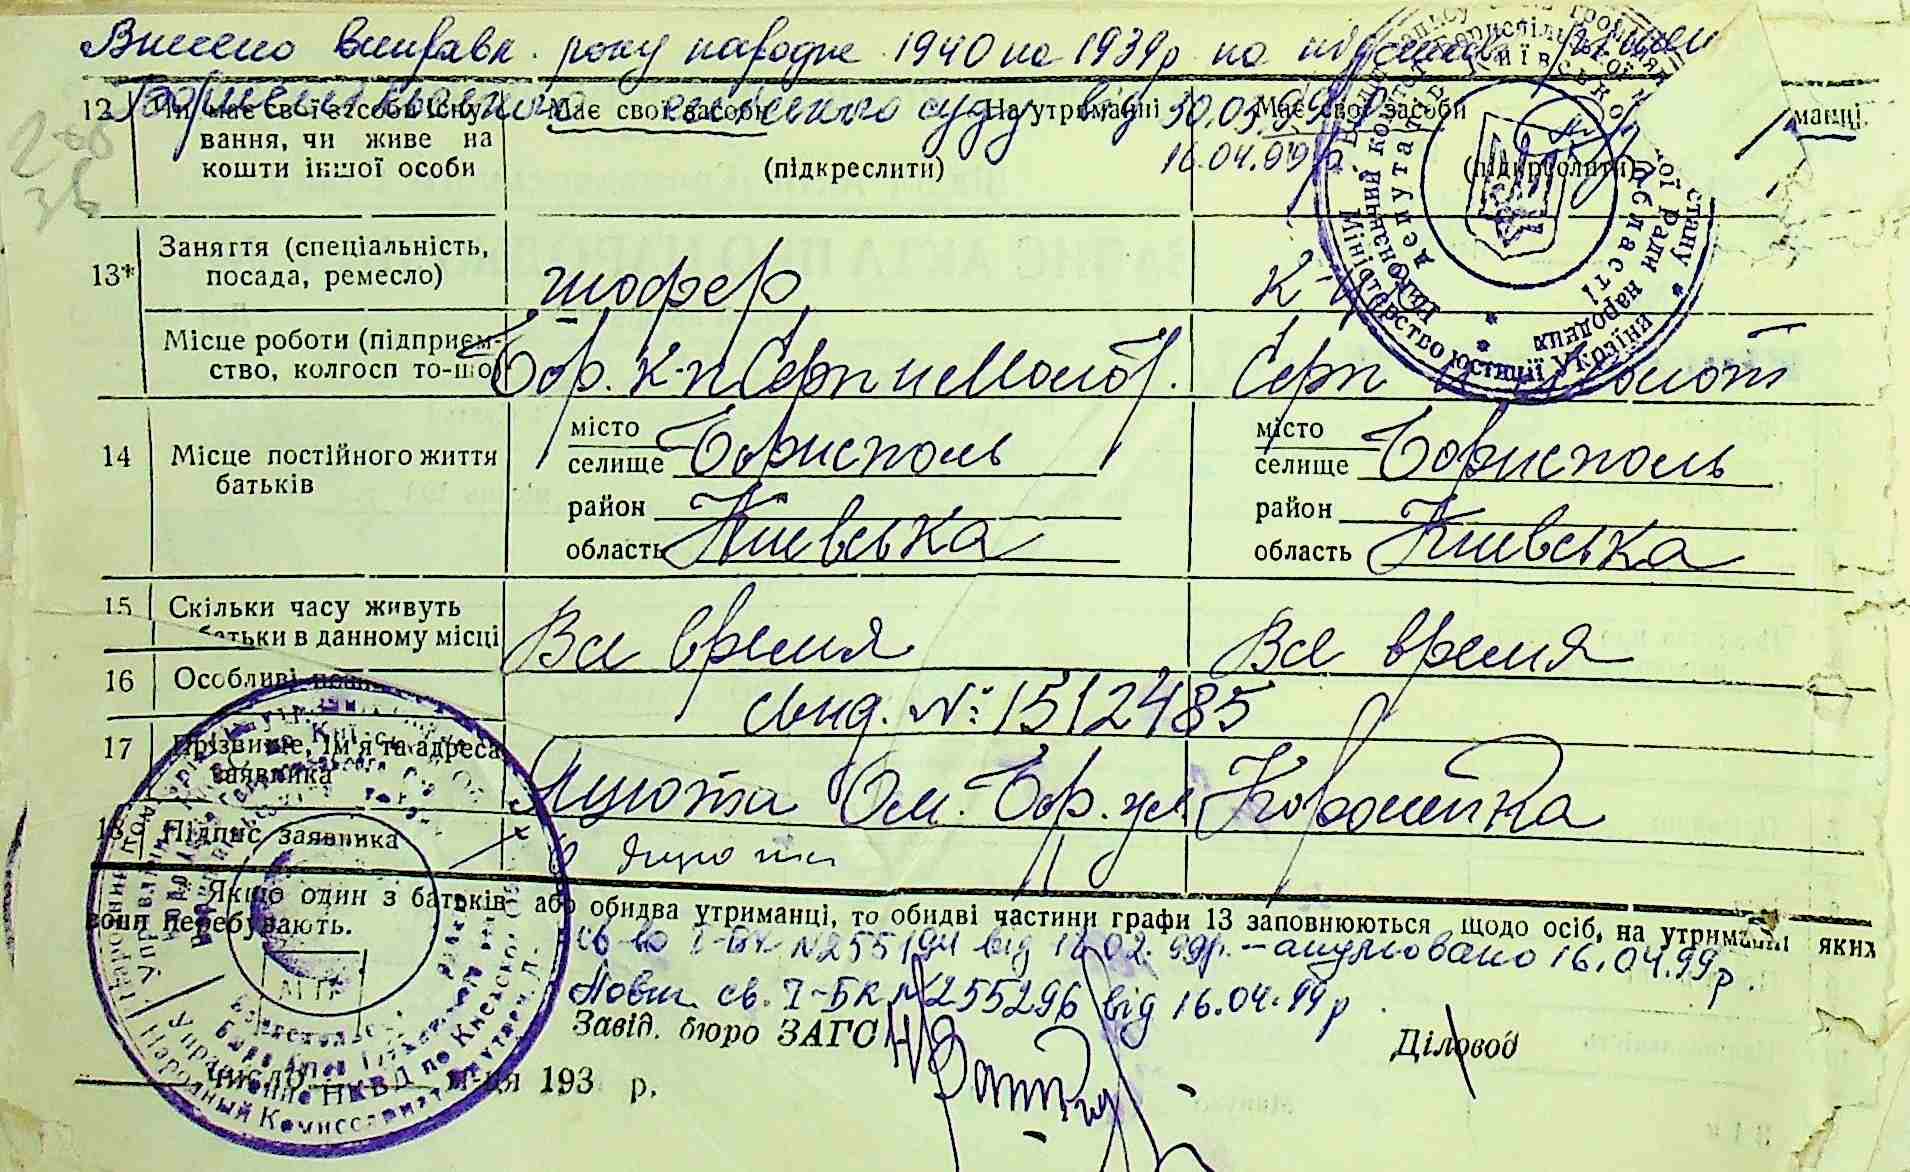 Внесено виправл. року народж 1940 на 1939р на підставі рішен
Бориспільського міського суду від 30.03.99р
16.04.99р
12 Чи має свої засоби існування, чи живе на кошти іншої особи
Має свої засоби На утриманні
(підкреслити)
Має свої засоби манці.
(підкреслити)
13* Заняття (спеціальність, посада, ремесло)
шофер
Місце роботи (підприємство, колгосп то-що)
Бор. к-п Серп и Молот.
Серп и Молот
14 Місце постійного життя батьків
місто
селище Борисполь
район
область Киевська
місто
селище Борисполь
район
область Киевська
15 Скільки часу живуть батьки в данному місці
Все время
Все время
16 Особливі
свид. №: 1512485
17 Прізвище, ім'я та адреса заявника
Яцюта Ом. Бор. ул
18 Підпис заявника
Яцюта
Якщо один з батьків або обидва утриманці, то обидві частини графи 13 заповнюються щодо осіб, на утриманні яких
вони перебувають.
св-во І-БК №255194 від 02.99р. – анульовано 16.04.99р.
Повт. св. І-БК №255296 від 16.04.99р.
Завід. бюро ЗАГС
Діловод
число м-ця 193 р.
Міністерство юстиції України
Управление НКВД по Киевской
Народный Комиссариат